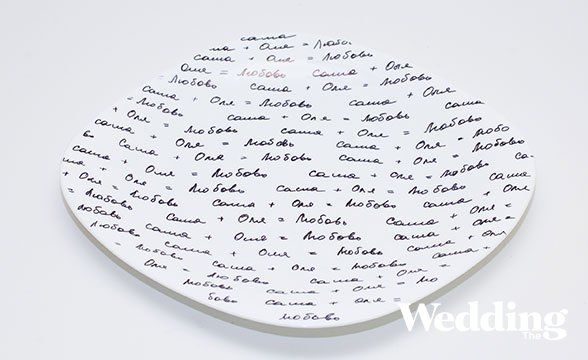 саша
ша + Оля = Любо
саша + Оля = Любовь
Оля = Любовь саша + Оля
= Любовь саша + Оля = Любовь
саша + Оля = Любовь саша + Оля
= Любовь саша + Оля = Любовь саша
+ Оля = Любовь саша + Оля = Любовь
саша + Оля = Любовь саша + Оля = Любо
вь саша + Оля = Любовь саша + Оля = Любовь
саша + Оля = Любовь саша + Оля = Любовь са
ша + Оля = Любовь саша + Оля = Любовь
+ Оля = Любовь саша + Оля = Любовь саша
= Любовь саша + Оля = Любовь саша + Оля
Любовь саша + Оля = Любовь саша + Оля =
Любовь саша + Оля = Любовь саша + Оля
= саша + Оля = Любовь саша +
Оля = Любовь саша + Оля =
Любовь саша + Оля = Лю
бовь саша + Оля =
Любовь
The Wedding